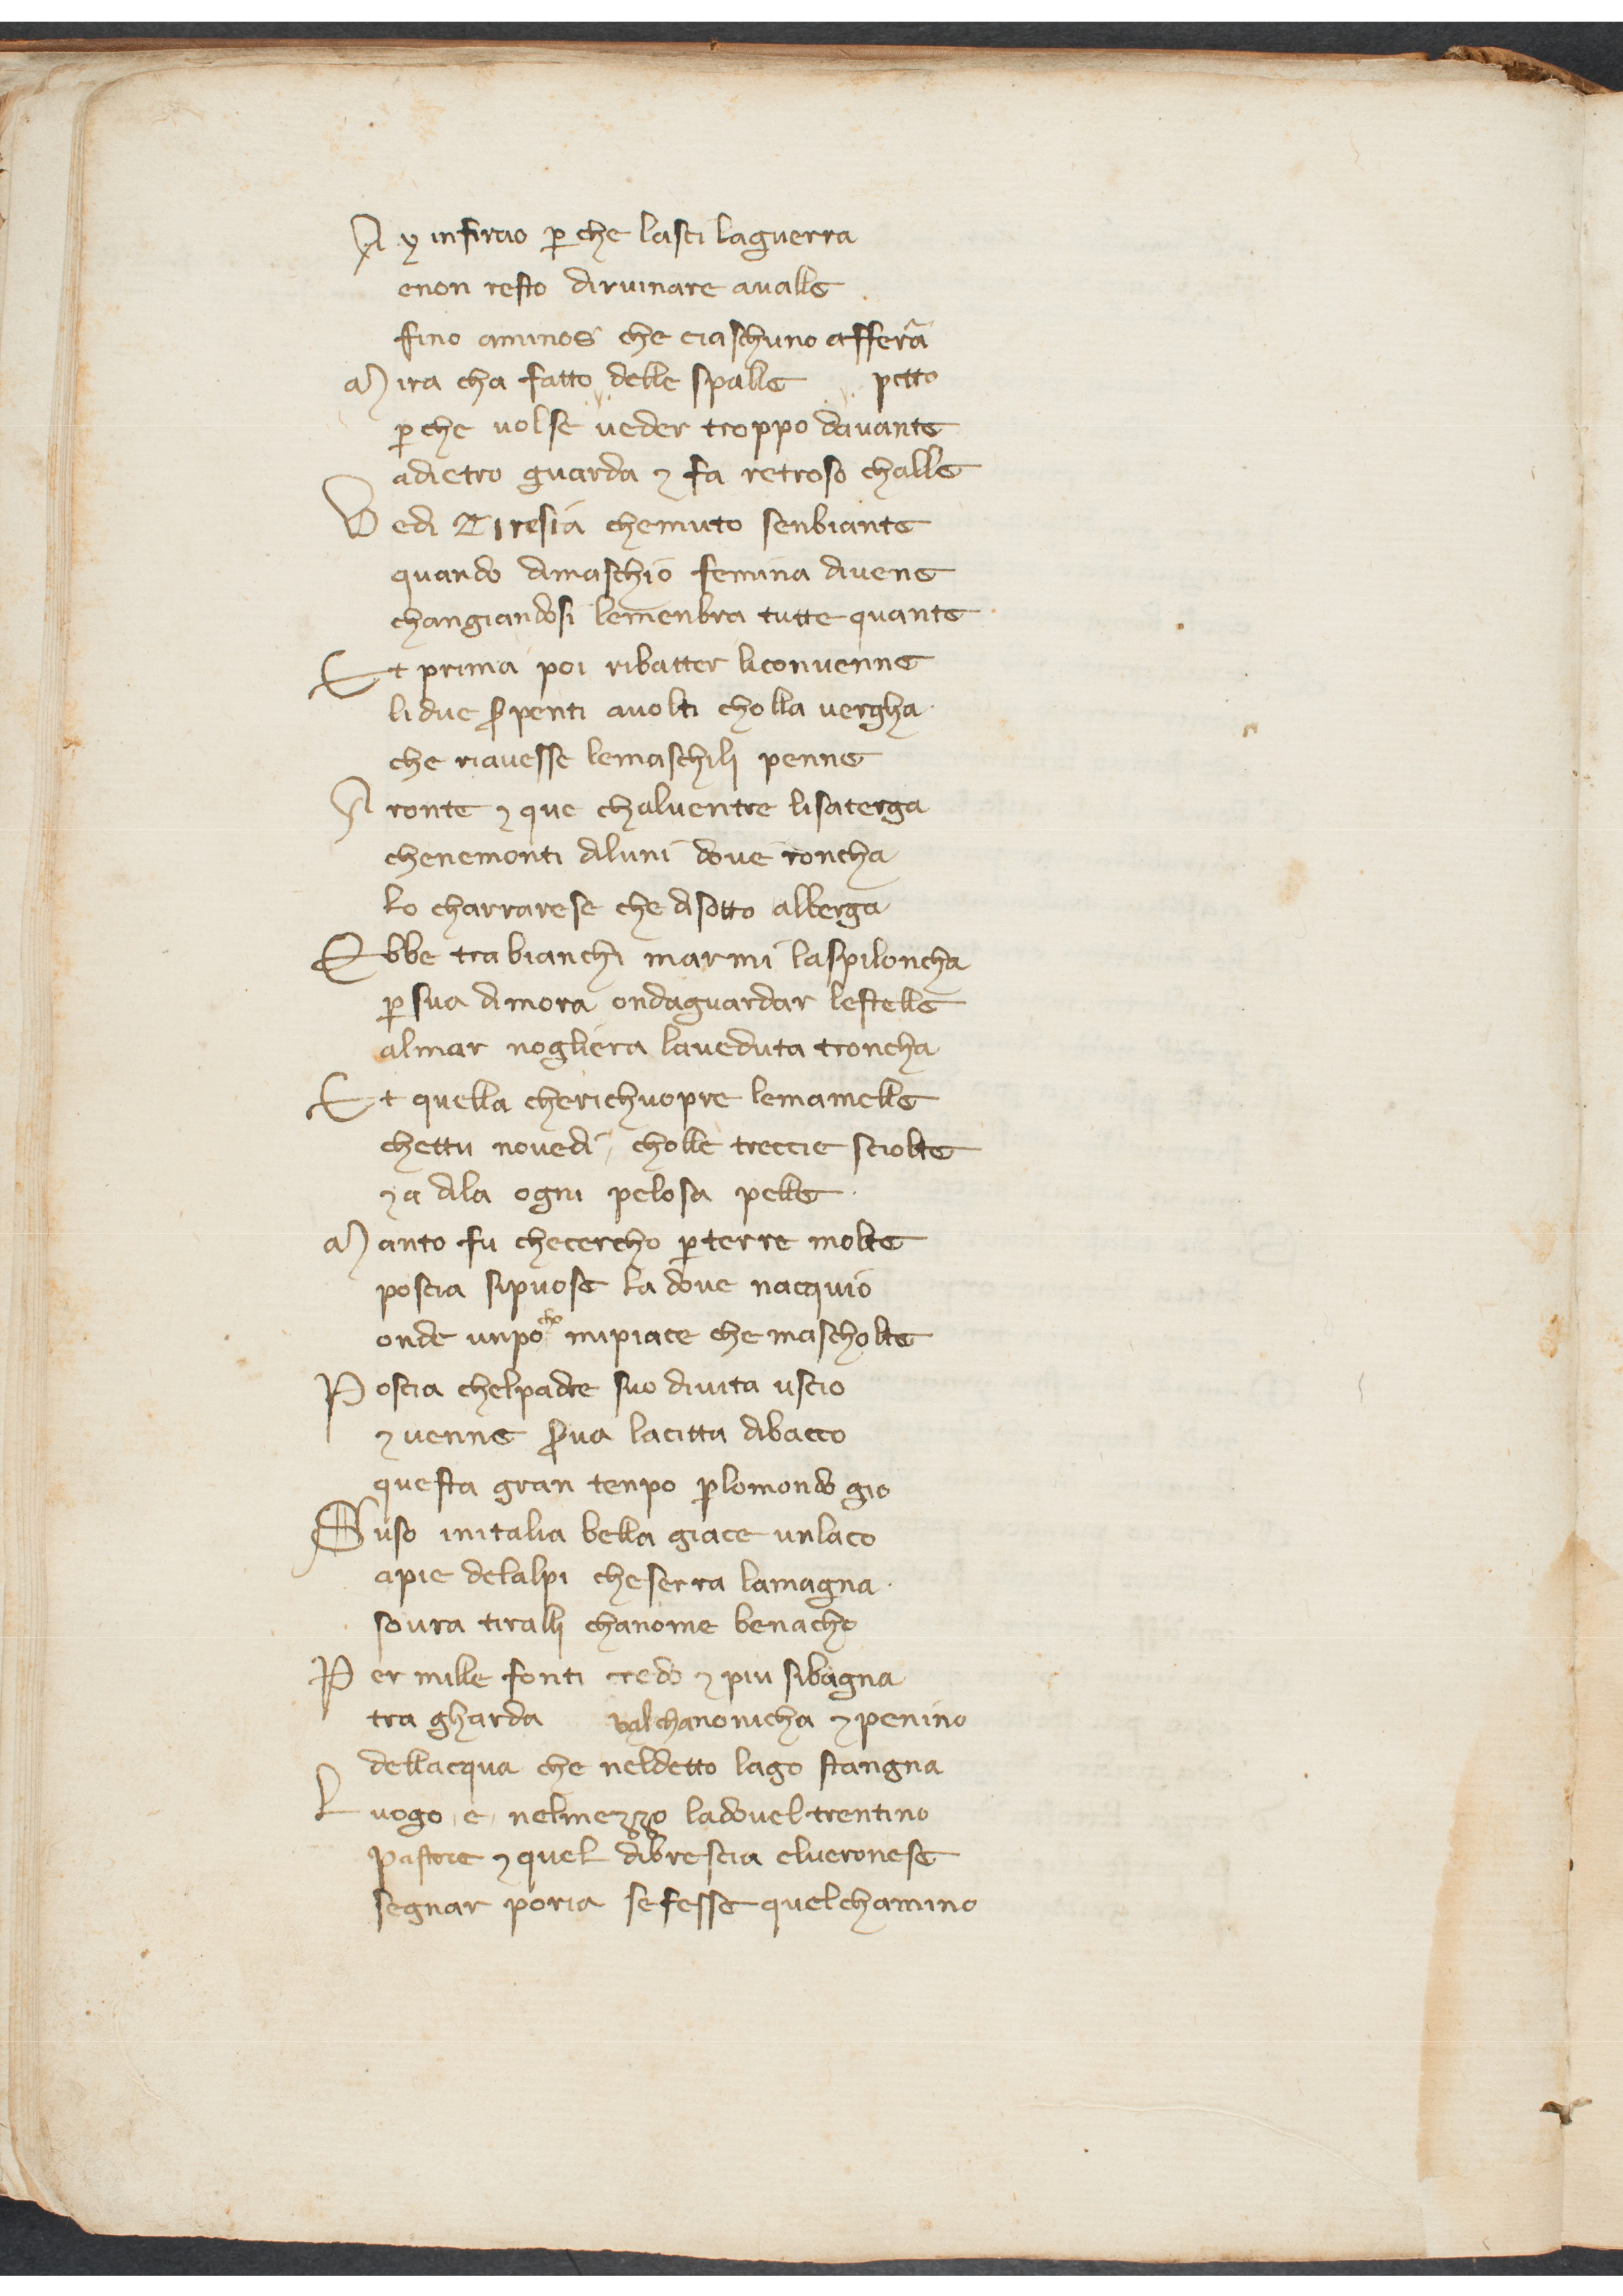 A y infirao p che lasci laguerra
enon resto diruinare aualle
fino aminos che ciaschuno afferra
M ira cha fatto delle spalle petto
p che uolse ueder troppo dauante
adietro guarda ⁊ fa retroso challe
V edi Tiresia chemuto senbiante
quando dimaschio femina diuene
changiandosi lemenbra tutte quante
E t prima poi ribatter liconuenne
lidue spenti auolti cholla uergha
che riauesse lemaschili penne
A ronte ⁊ que chaluentre lisaterga
chenemonti diluni doue roncha
lo charrarese che disotto alberga
E bbe tra bianchi marmi laspiloncha
p sua dimora ondaguardar lestelle
almar nogliera laueduta troncha
E t quella cherichuopre lemamelle
chettu nouedi cholle treccie sciolte
⁊ a dila ogni pelosa pelle
M anto fu checercho p terre molte
poscia sipuose la doue nacquio
onde unpocho mipiace che mascholte
P oscia chelpadre suo diuita uscio
⁊ uenne serua lacitta dibacco
questa gran tenpo plomondo gio
S uso initalia bella giace unlaco
apie delalpi cheserra lamagna
soura tiralli chanome benacho
P er mille fonti credo ⁊ piu sibagna
tra gharda ualchamonicha ⁊ penino
dellacqua che neldetto lago stangna
L uogo e nelmezzo ladouel trentino
pastore ⁊ quel dibrescia elueronese
segnar poria sefesse quelchamino